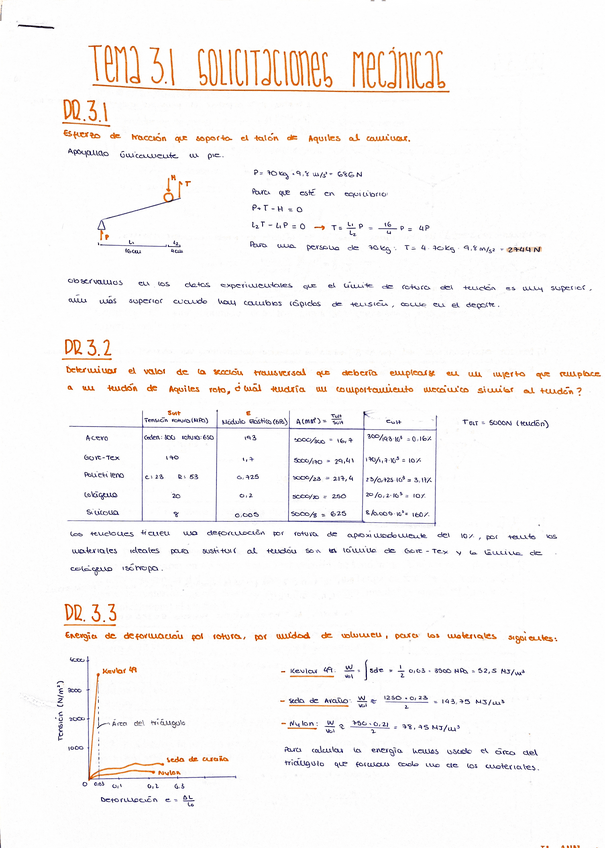 TEMA 3.1 SOLICITACIONES MECÁNICAS
DR.3.1
Esfuerzo de tracción que soporta el talón de Aquiles al caminar.
Apoyando únicamente un pie.
P = 70kg · 9.8 m/s² = 686N
Para que esté en equilibrio:
P + T - H = 0
L₂T - L₁P = 0 → T = L₁/L₂ P = 16/4 P = 4P
Para una persona de 70kg: T = 4 · 70kg · 9.8 m/s² = 2744N
H
T
P
L₁
16cm
L₂
4cm
Observamos en los datos experimentales que el límite de rotura del tendón es muy superior,
aún más superior cuando hay cambios rápidos de tensión, como en el deporte.
DR 3.2
Determinar el valor de la sección transversal que debería emplearse en un injerto que remplace
a un tendón de Aquiles roto, ¿cuál tendría un comportamiento mecánico similar al tendón?
Sult Tensión rotura (MPa)
E Módulo Elástico (GPa)
A(mm²) = Tult/Sult
εult
Tult = 5000N (tendón)
Acero 193 5000/300 = 16,7 300/193·10³ = 0.16%
Gore-Tex 170 1,7 5000/170 = 29,41 170/1,7·10³ = 10%
Polietileno E: 23 R: 53 0,725 5000/23 = 217,4 23/0,725·10³ = 3.17%
Colágeno 20 0.2 5000/20 = 250 20/0.2·10³ = 10%
Silicona 8 0.005 5000/8 = 625 8/0.005·10³ = 160%
Los tendones tienen una deformación por rotura de aproximadamente del 10%, por tanto los
materiales ideales para sustituir al tendón son la lámina de Gore-Tex y la lámina de
colágeno isótropa.
DR. 3.3
Energía de deformación por rotura, por unidad de volumen, para los materiales siguientes:
Tensión (N/m²)
4000
3000
2000
1000
Kevlar 49
Área del triángulo
Seda de araña
Nylon
0 0.03 0,1 0,2 0.3
Deformación e = ΔL/L₀
- Kevlar 49: W/vol = ∫sde = 1/2 0,03 · 3500 MPa = 52,5 MJ/m³
- Seda de Araña: W/vol ≈ 1250 · 0,23/2 = 143.75 MJ/m³
- Nylon: W/vol ≈ 750 · 0.21/2 = 78,75 MJ/m³
Para calcular la energía hemos usado el área del
triángulo que forman cada uno de los materiales.